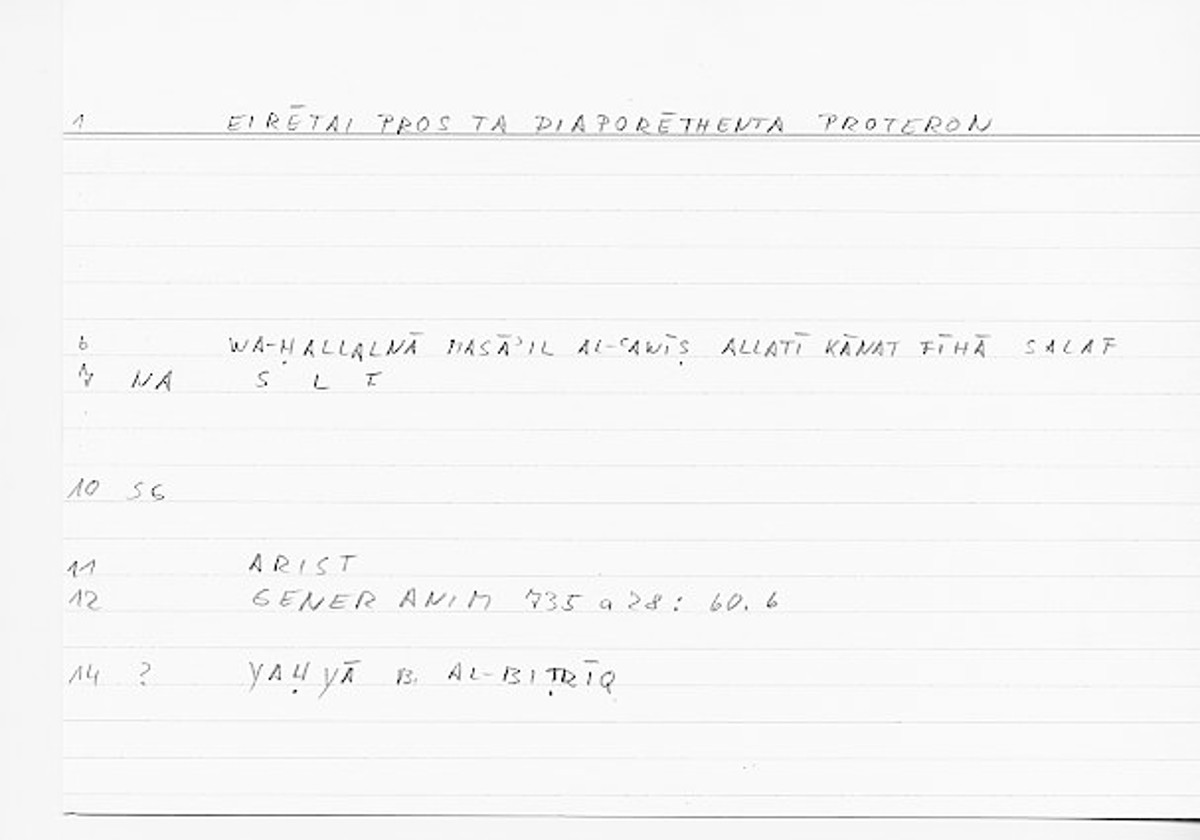 1 EIRĒTAI PROS TA DIAPORĒTHENTA PROTERON
6 WA-ḤALLALNĀ MASĀʾIL AL-ʿAWĪṢ ALLATĪ KĀNAT FĪHĀ SALAF
7 NA S L F
10 SG
11 ARIST
12 GENER ANIM 735 a 28: 60.6
14 ? YAḤYĀ B. AL-BIṬRĪQ